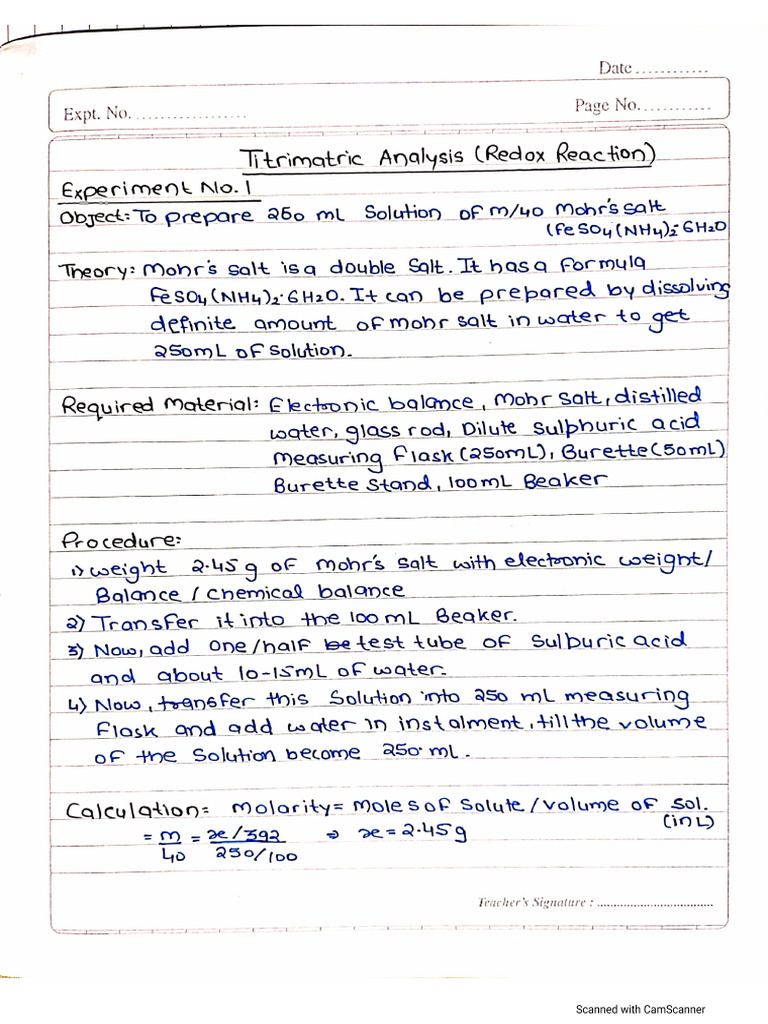 Date ............
Expt. No. ...................
Page No. ............
Titrimatric Analysis (Redox Reaction)
Experiment No. 1
Object: To prepare 250 mL Solution of m/40 Mohr's salt
(FeSO4(NH4)2·6H2O
Theory: Mohr's salt is a double Salt. It has a formula
FeSO4(NH4)2·6H2O. It can be prepared by dissolving
definite amount of mohr salt in water to get
250mL of solution.
Required Material: Electronic balance, Mohr salt, distilled
water, glass rod, Dilute sulphuric acid
measuring flask (250mL), Burette (50mL)
Burette Stand, 100mL Beaker
Procedure:
1) weight 2.45 g of mohr's salt with electronic weight/
Balance / chemical balance
2) Transfer it into the 100 mL Beaker.
3) Now, add one/half be test tube of Sulburic acid
and about 10-15mL of water.
4) Now, transfer this Solution into 250 mL measuring
flask and add water in instalment, till the volume
of the Solution become 250 mL.
Calculation= molarity= moles of solute / volume of sol.
(in L)
= m/40 = x/392 / 250/100 ⇒ x = 2.45g
Teacher's Signature : ..................................
Scanned with CamScanner